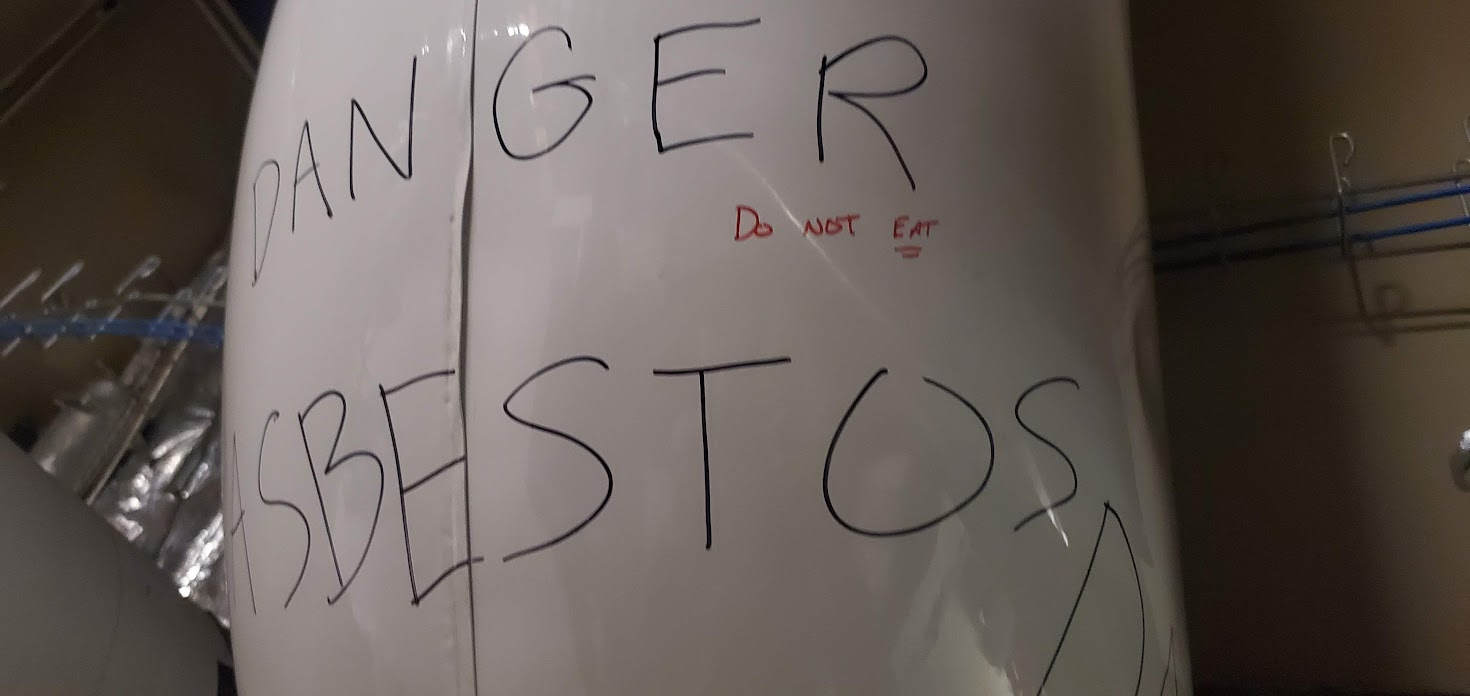 DANGER
DO NOT EAT
ASBESTOS